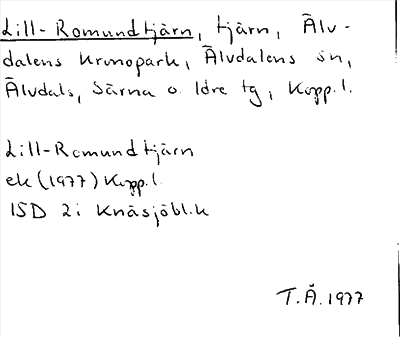 Lill-Romundtjärn, tjärn, Älv-
dalens kronopark, Älvdalens sn,
Älvdals, Särna o. Idre tg, Kopp.l.
Lill-Romundtjärn
ek (1977) Kopp.l.
15D 2i Knäsjöbl.k
T.Å. 1977